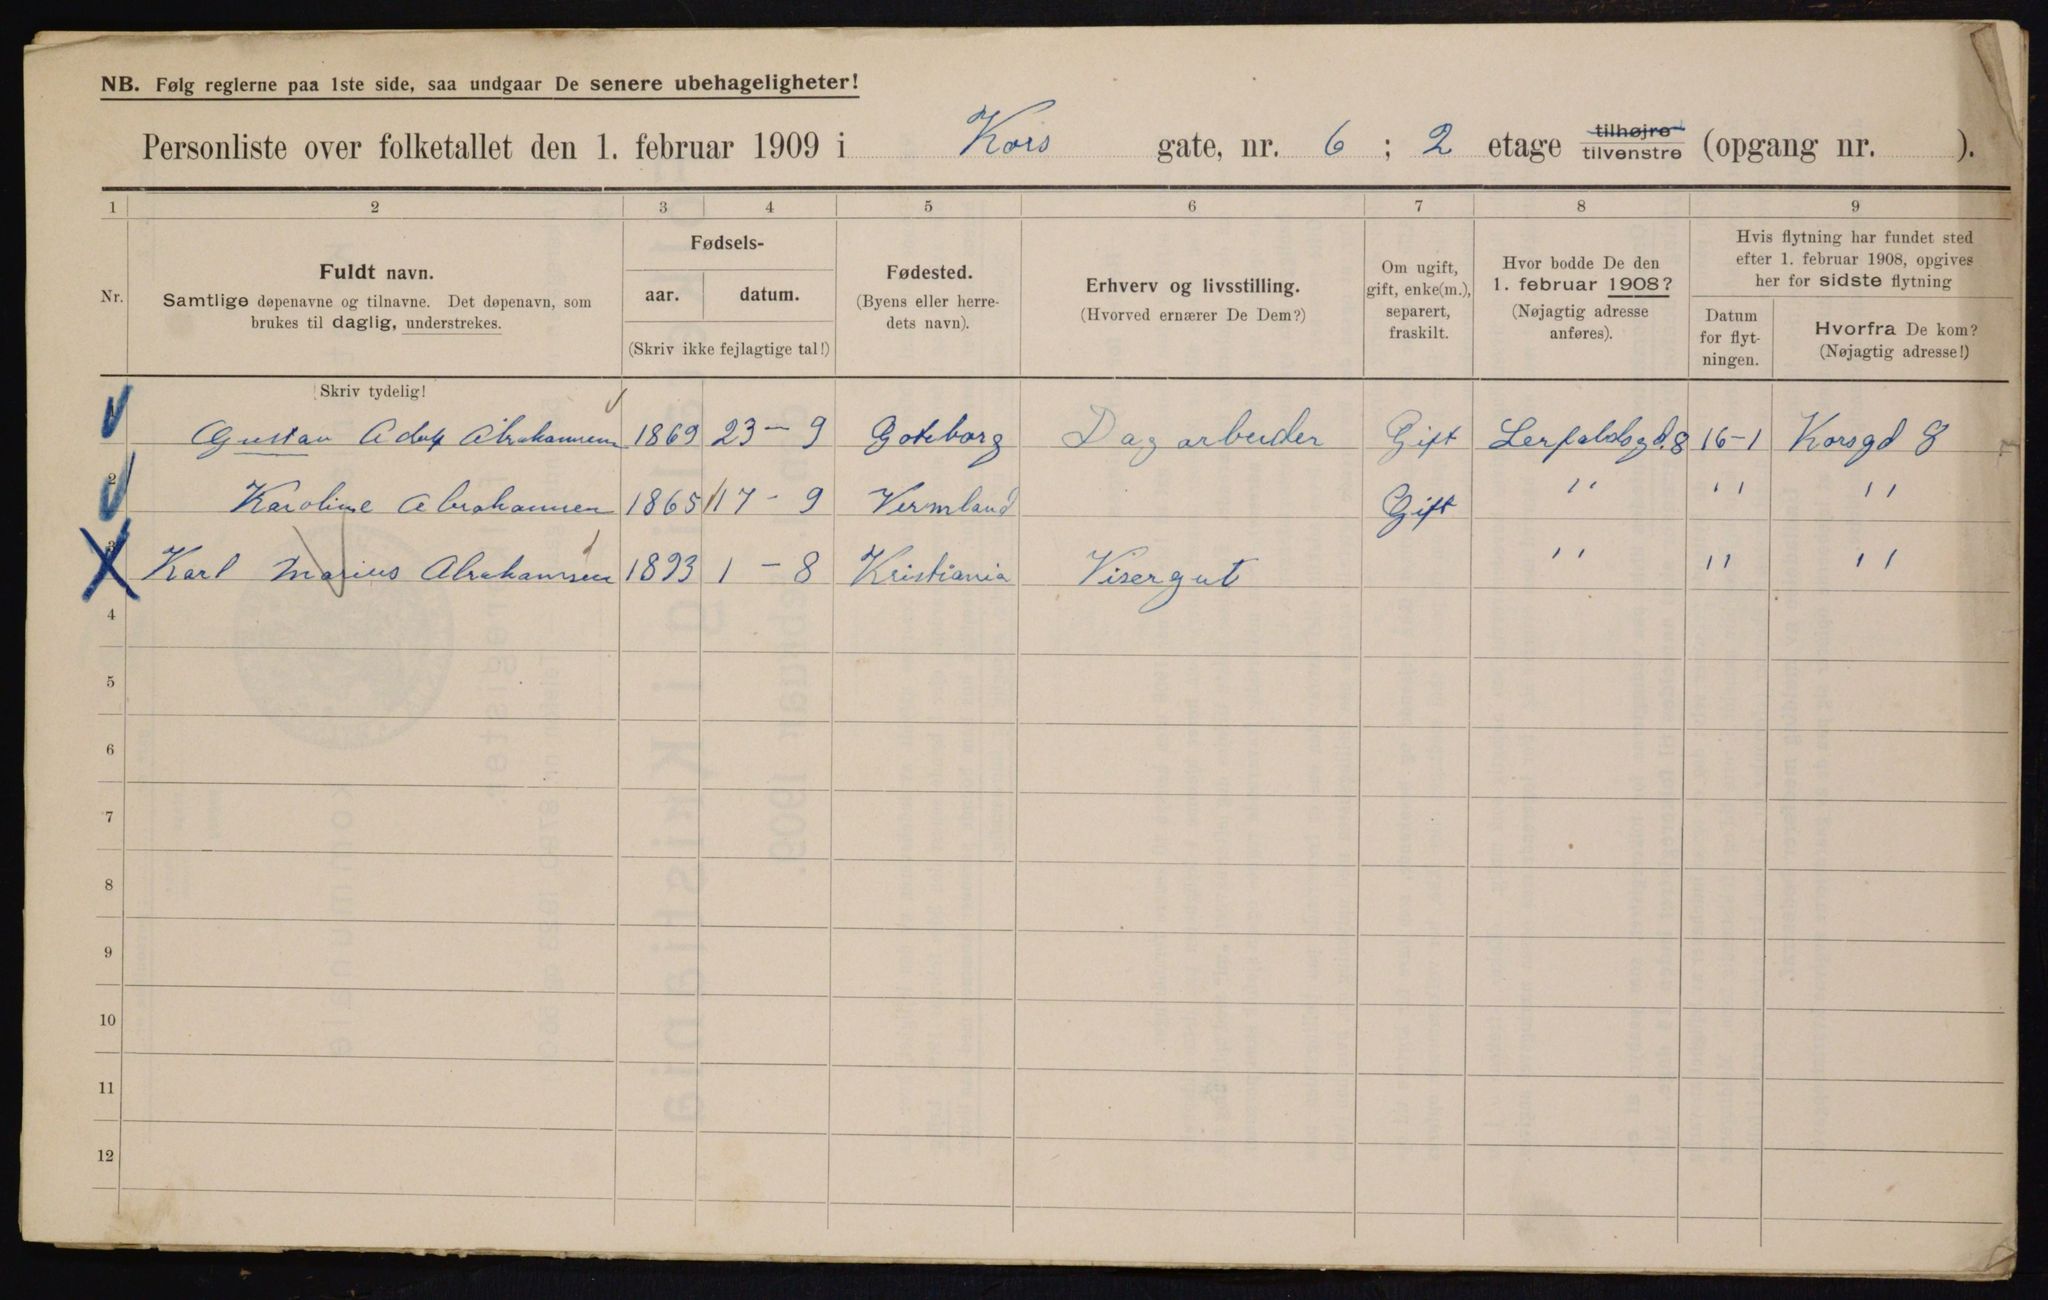 NB. Følg reglerne paa 1ste side, saa undgaar De senere ubehageligheter!
Personliste over folketallet den 1. februar 1909 i Kors gate, nr. 6 ; 2 etage tilhøjre tilvenstre (opgang nr. ).
1 2 3 4 5 6 7 8 9
Nr.
Fuldt navn.
Samtlige døpenavne og tilnavne. Det døpenavn, som
brukes til daglig, understrekes.
Fødsels-
aar. datum.
(Skriv ikke fejlagtige tal!)
Fødested.
(Byens eller herre-
dets navn).
Erhverv og livsstilling.
(Hvorved ernærer De Dem?)
Om ugift,
gift, enke(m.),
separert,
fraskilt.
Hvor bodde De den
1. februar 1908?
(Nøjagtig adresse
anføres).
Hvis flytning har fundet sted
efter 1. februar 1908, opgives
her for sidste flytning
Datum
for flyt-
ningen.
Hvorfra De kom?
(Nøjagtig adresse!)
Skriv tydelig!
Gustav Adolf Abrahamsen 1869 23-9 Goteborg Dagarbeider Gift Lerfaldsgd. 8 16-1 Korsgd 8
2 Karoline Abrahamsen 1865 17-9 Vermland Gift " " "
3 Karl Marius Abrahamsen 1893 1-8 Kristiania Visergut " " "
4
5
6
7
8
9
10
11
12